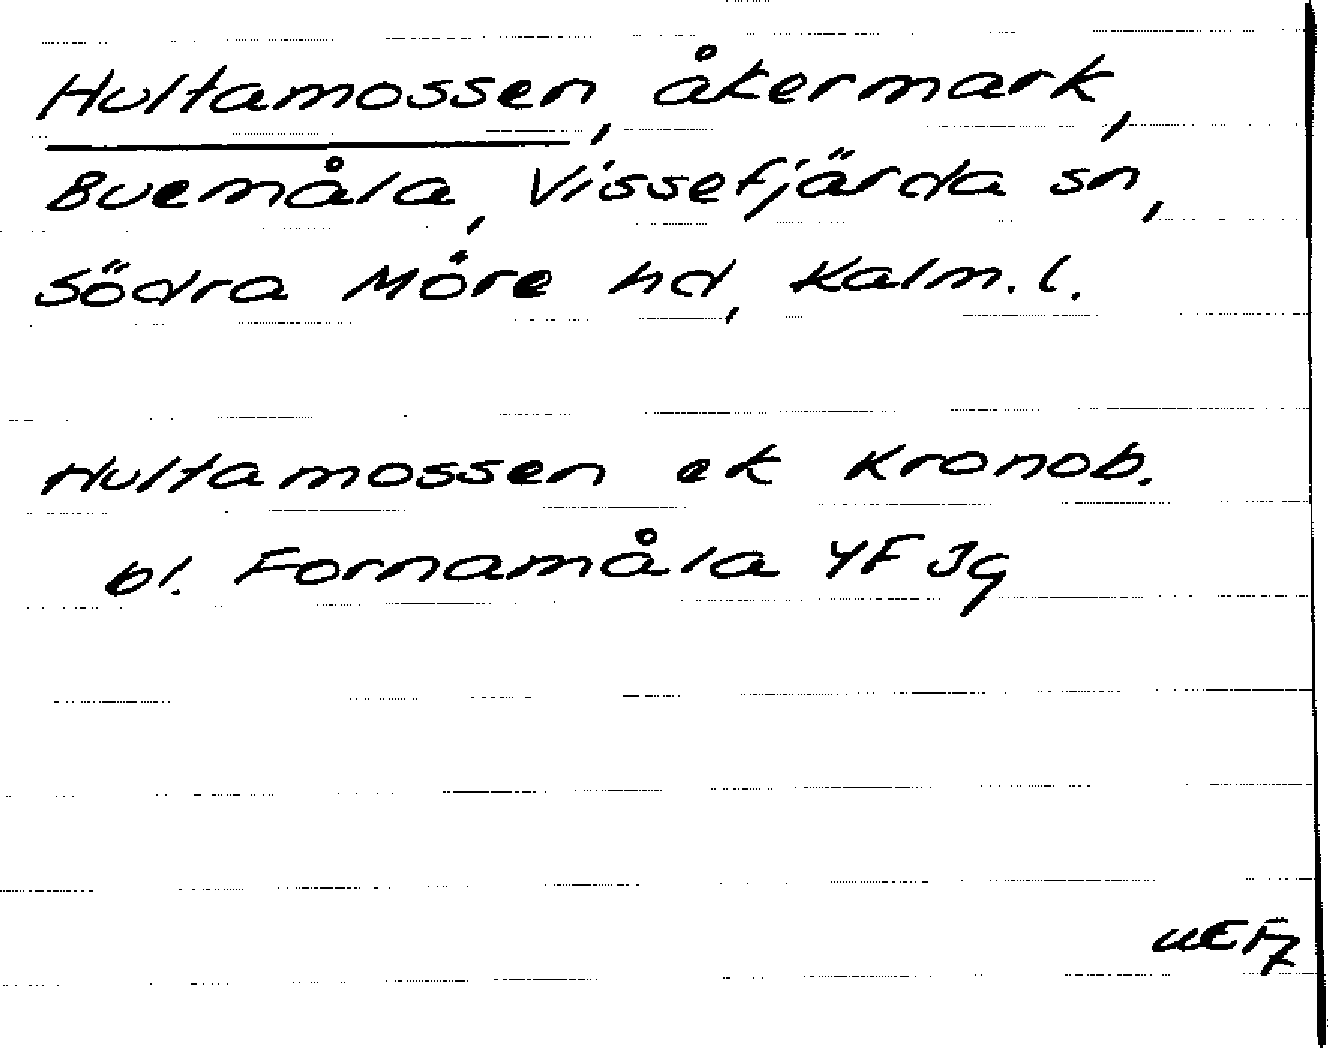 Hultamossen, åkermark,
Buemåla, Vissefjärda sn,
Södra Möre hd, Kalm. l.
Hultamossen ek Kronob.
bl. Fornamåla YF Jg